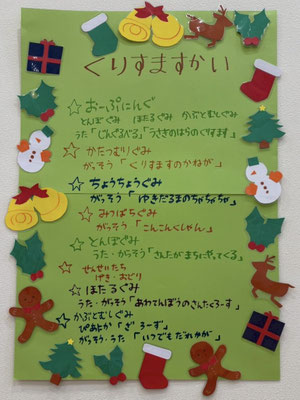 くりすますかい
☆おーぷにんぐ
とんぼぐみ ほたるぐみ かぶとむしぐみ
うた「じんぐるべる」「うさぎのはらのくりすます」
☆かたつむりぐみ
がっそう「くりすますのかねが」
☆ちょうちょうぐみ
がっそう「ゆきだるまのちゃちゃちゃ」
☆みつばちぐみ
がっそう「こんこんくしゃん」
☆とんぼぐみ
うた・がっそう「さんたがまちにやってくる」
☆せんせいたち
げき・おどり
☆ほたるぐみ
うた・がっそう「あわてんぼうのさんたくろーす」
☆かぶとむしぐみ
ぴあにか「ざ ろーず」
がっそう・うた「いつでもだれかが」